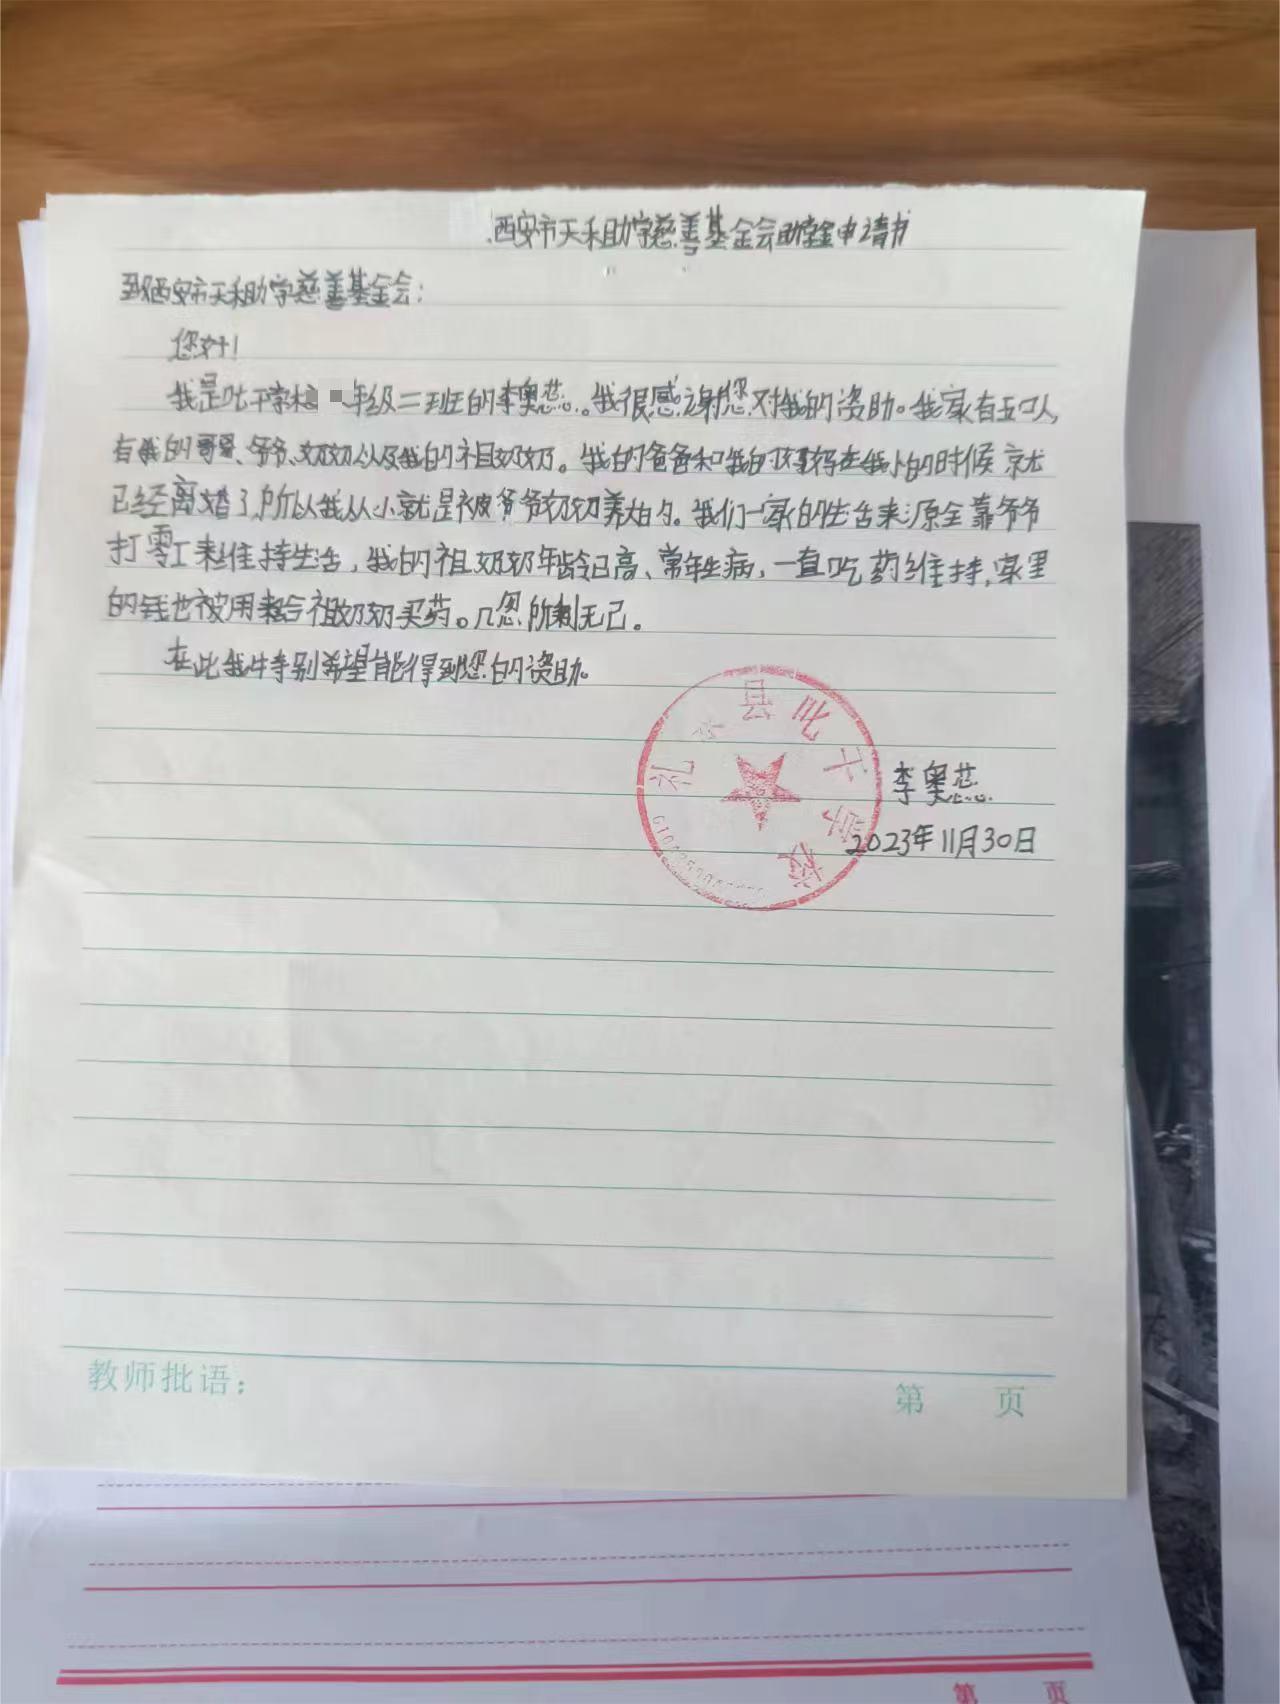 西安市天禾助学慈善基金会助学金申请书
致西安市天禾助学慈善基金会:
您好!
我是叱干学校 年级二班的李奥蕊。我很感谢您对我的资助。我家有五口人,
有我的哥哥、爷爷、奶奶以及我的祖奶奶。我的爸爸和我的妈妈在我小的时候就
已经离婚了,所以我从小就是被爷爷奶奶养大的。我们一家的生活来源全靠爷爷
打零工来维持生活,我的祖奶奶年龄已高、常年生病,一直吃药维持,家里
的钱也被用来给祖奶奶买药。几忽所剩无己。
在此我特别希望能得到您的资助。
礼泉县叱干学校
李奥蕊
2023年11月30日
教师批语:
第 页
第 页